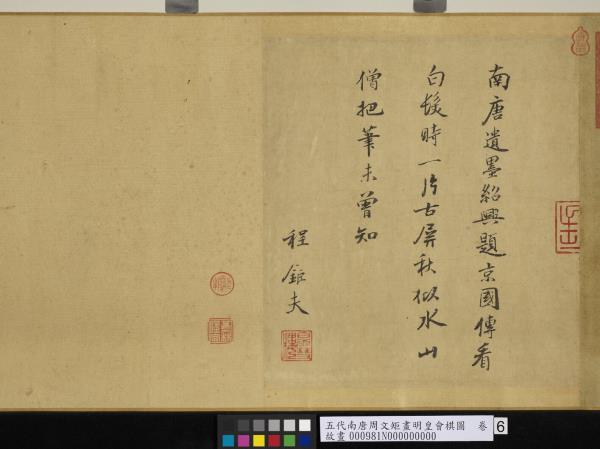 南唐遺墨紹興題京國傳看
白髮時一片古屏秋似水山
僧把筆未曾知
程鉅夫
五代南唐周文矩畫明皇會棋圖 卷 6
故畫000981N000000000